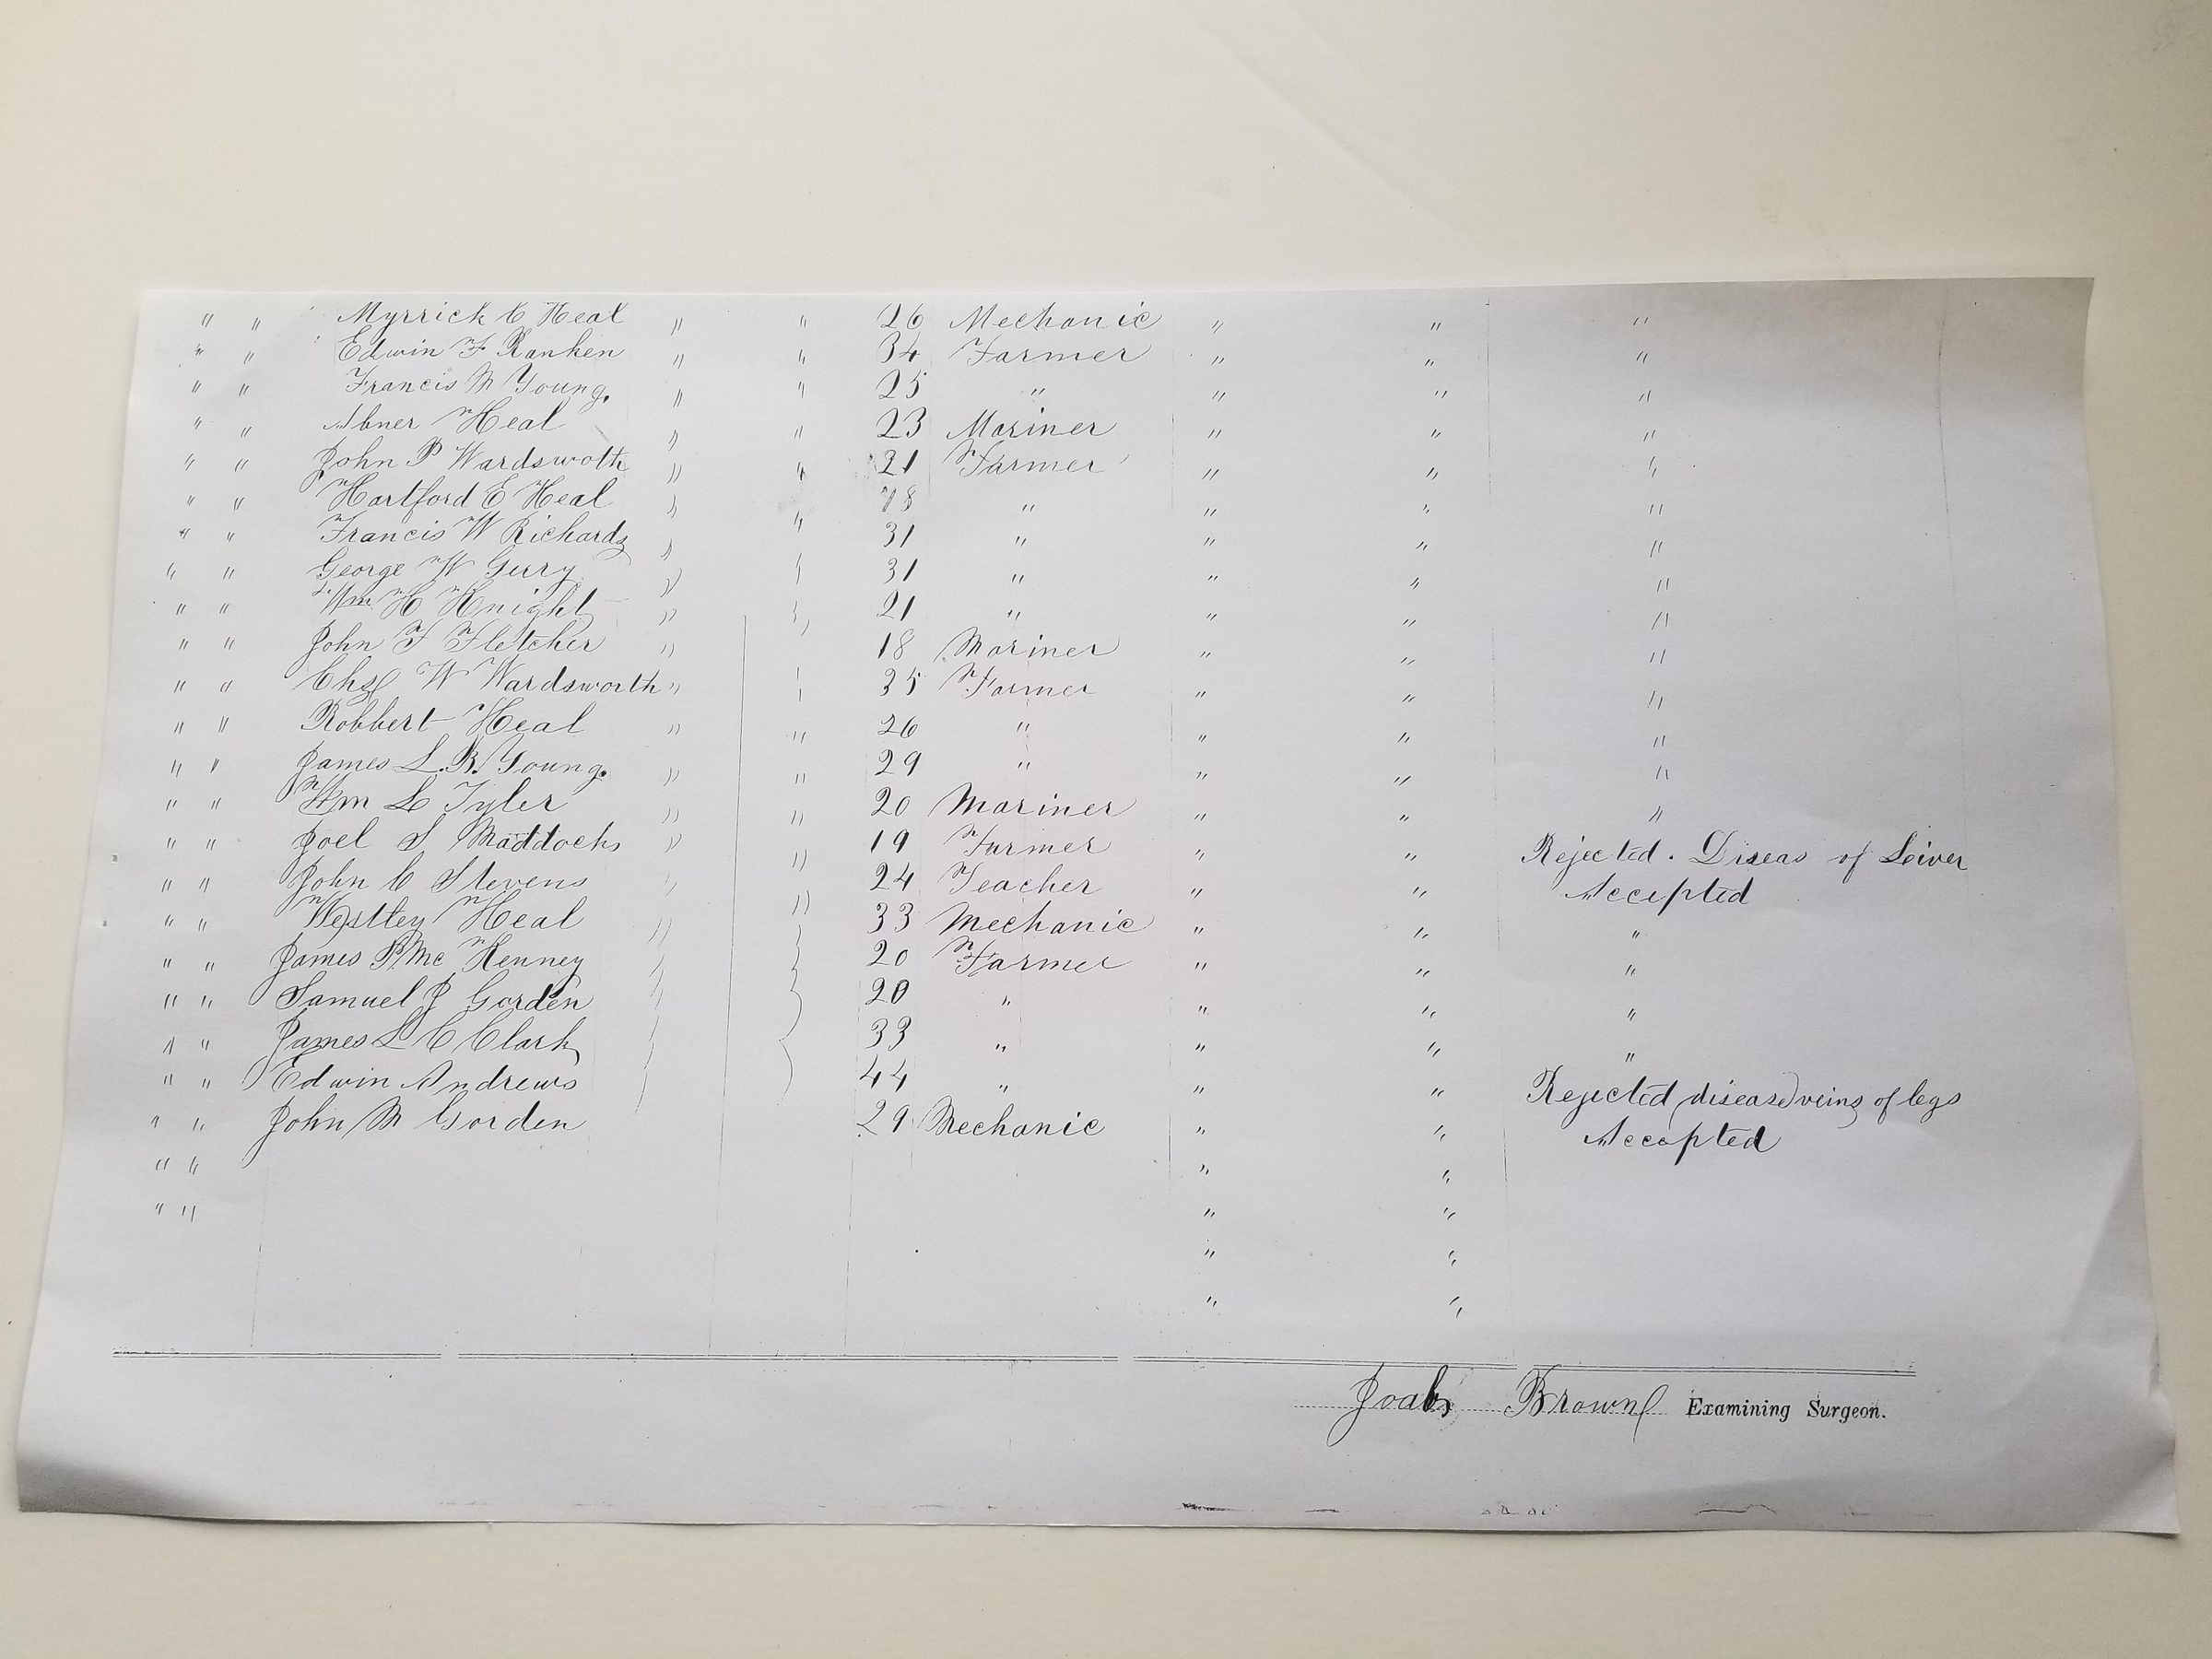 " " Myrrick C Heal " " 26 Mechanic " " "
" " Edwin F Ranken " " 34 Farmer " " "
" " Francis M Young. " " 25 " " " "
" " Abner Heal " " 23 Mariner " " "
" " John P Wardswoth " " 21 Farmer " " "
" " Hartford E Heal " " 18 " " " "
" " Francis W Richards " 31 " " " "
" " George W Gurry " " 31 " " " "
" " Wm H Knight " " 21 " " " "
" " John F Fletcher " 18 Mariner " " "
" " Chas W Wardsworth " " 35 Farmer " " "
" " Robbert Heal " " 26 " " " "
" " James L. B. Young. " " 29 " " " "
" " Wm L Tyler " " 20 Mariner " " "
" " Joel S Maddocks " " 19 Farmer " " Rejected. Diseas of Leiver
" " John C Stevens " " 24 Teacher " " Accepted
" " Westley Heal " " 33 Mechanic " " "
" " James P Mc Kenney " " 20 Farmer " " "
" " Samuel J Gorden " " 20 " " " "
" " James L C Clark " " 33 " " " "
" " Edwin Andrews " " 44 " " " Rejected diseased veins of legs
" " John M Gorden 29 Mechanic " " Accepted
" " " "
" " " "
" "
" "
Joab Brown Examining Surgeon.